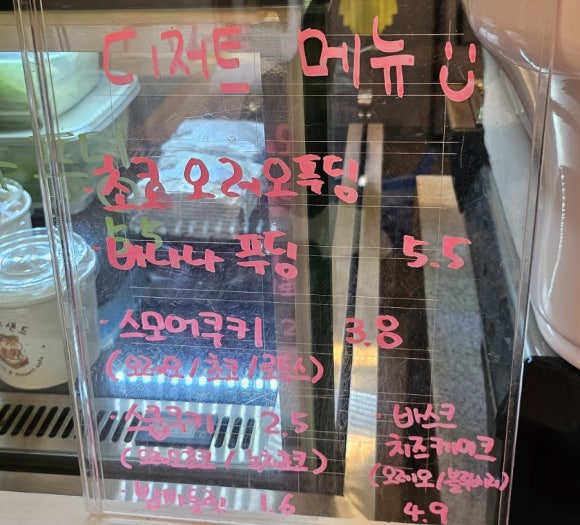 디저트 메뉴
· 초코 오레오푸딩
5.5
· 바나나 푸딩 5.5
· 스모어쿠키 3.8
(오레오 / 초코 / 로투스)
2.5
· 바스크
치즈케이크
(오레오 / 블루베리)
4.9
1.6